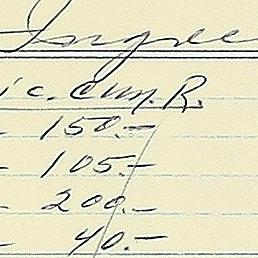 ic. Cum. R.
- 150.-
- 105.-
- 200.-
- 40.-